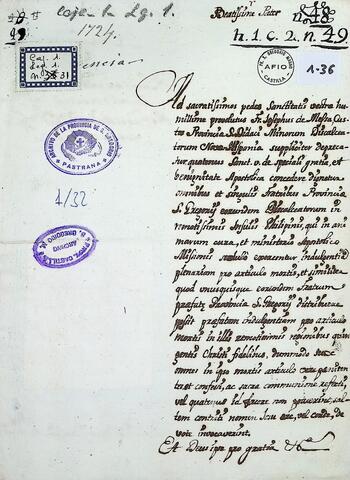 Caja 1. Lg. 1.
1724.
Beatissime Pater
h. 1. c. 2. n. 49
Caj. 1.
Leg. 1
31
AFIO
1-36
ARCHIVO DE LA PROVINCIA DE S. GREGORIO
PASTRANA
4/32
ARCHIVO
Ad sacratissimos pedes Sanctitatis vestrae hu-
millime provolutus Fr. Josephus de Madri Cus-
Provinciae S. Didaci Minorum Discalcea-
torum suppliciter depreca-
tur quatenus Sanct. v. de speciali gratia, et
benignitate Apostolica concedere dignetur
omnibus et singulis Fratribus Provinciae
S. Gregorii eorumdem Discalceatorum in
remotissimis Insulis Philipinis, qui in ani-
marum cura, et ministerio Apostolico
exercentur indulgentiam
plenariam pro articulo mortis, et similiter
quod unusquisque eorumdem Fratrum
praefatae Provinciae S. Gregorii distribuere
possit praefatam indulgentiam pro articulo
mortis in illis remotissimis regionibus quin-
gentis Christi fidelibus, dummodo
omnes in quo mortis articulo vere poeniten-
tes et confessi, ac sacra communione refecti,
vel quatenus id facere non potuerint, sal-
tem contriti nomen Jesu ore, vel corde, de-
vote invocaverint.
Et Deus pro gratia &c.